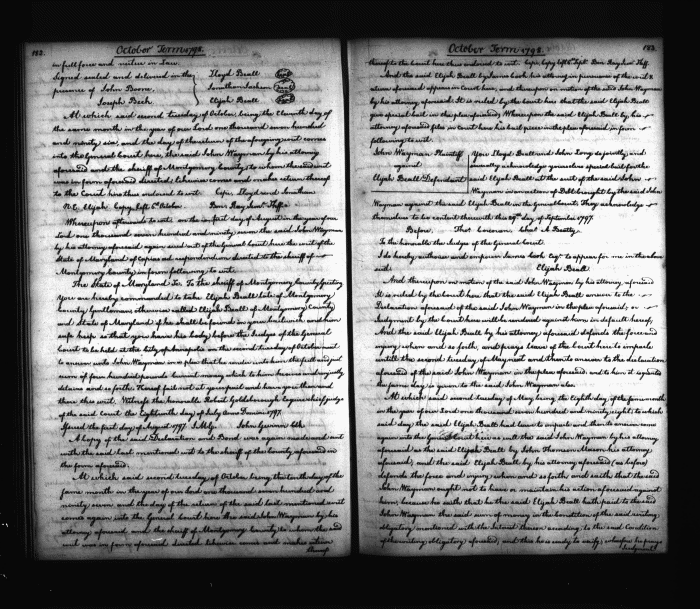 122.
October Term 1798.
in full force and virtue in Law.
Signed sealed and delivered in the Lloyd Beall
presence of John Boone. Jonathan
Joseph Beck Elijah Beall
At which said second tuesday of October being the Eleventh day of
the same month in the year of our Lord one thousand seven hundred
and ninety six, and the day of the return of the aforegoing writ comes
into the General Court here, the said John Wayman by his attorney
aforesaid and the sheriff of Montgomery County to whom the said writ
was in form aforesaid directed likewise comes and makes return thereof
to the Court here thus endorsed to wit. Cepi, Lloyd and Jonathan
N.E. Elijah Copy left 6th October. Danl Reintzel Shff.
Whereupon afterwards to wit on the first day of August in the year of our
Lord one thousand seven hundred and ninety seven the said John Wayman
by his attorney aforesaid again sued out of the General Court here the writ of the
State of Maryland of Capias ad respondendum directed to the sheriff of
Montgomery County in form following to wit.
The State of Maryland To: To the sheriff of Montgomery County Greeting
You are hereby commanded to take Elijah Beall late of Montgomery
County Gentleman otherwise called Elijah Beall of Montgomery County
and State of Maryland if he shall be found in your bailiwick and him
safe keep so that you have his body before the Judges of the General
Court to be held at the City of Annapolis on the second tuesday of October next
to answer unto John Wayman in a plea that he render unto him the full and just
sum of four hundred pounds current money which to him he owes and unjustly
detains and so forth. Hereof fail not at your peril and have you then and
there this writ. Witness the honorable Robert Goldsborough Esquire chief judge
of the said Court the Eighteenth day of July Anno Domini 1797.
Issued the first day of August 1797. John Gwinn Clk.
A Copy of the said Declaration and Bond was again made and sent
with the said last mentioned writ to the sheriff of the County aforesaid in
the form aforesaid.
At which said second tuesday of October being the tenth day of the
same month in the year of our Lord one thousand seven hundred and
ninety seven and the day of the return of the said last mentioned writ
comes again into the General Court here the said John Wayman by his
attorney aforesaid and the sheriff of Montgomery County to whom the said
writ was in form aforesaid directed likewise comes and makes return
thereof
October Term 1798.
123.
thereof to the Court here thus endorsed to wit. Cepi, Copy left Shff.
And the said Elijah Beall by his attorney in pursuance of the writ &
action aforesaid appears in Court here, and thereupon on motion of the said John Wayman
by his attorney aforesaid It is ruled by the Court here that the said Elijah Beall
give special bail in the plea aforesaid; Whereupon the said Elijah Beall by his
attorney aforesaid files in Court here his bail piece in the plea aforesaid in form
following to wit.
John Wayman Plaintiff You Lloyd Beall and John jointly and
against severally acknowledge yourselves special bail for the
Elijah Beall Defendant said Elijah Beall at the suit of the said John
Wayman in an action of Debt brought by the said John
Wayman against the said Elijah Beall in the general Court. They acknowledge
themselves to be content therewith this 29th day of September 1797.
Before, Thos. Chas. A. Beatty.
To the honorable the Judges of the General Court.
I do hereby authorise and empower Esqr to appear for me in the above
suit. Elijah Beall.
And thereupon on motion of the said John Wayman by his attorney aforesaid
It is ruled by the Court here that the said Elijah Beall answer to the
Declaration aforesaid of the said John Wayman in the plea aforesaid; or
Judgment by the Court here will be rendered against him by default thereof,
And the said Elijah Beall by his attorney aforesaid defends the force and
injury when and so forth, and prays leave of the Court here to imparle
until the second tuesday of May next and then to answer to the declaration
aforesaid of the said John Wayman in the plea aforesaid; and to him it is granted
the same day is given to the said John Wayman also.
At which said second tuesday of May, being the eighth day of the same month
in the year of our Lord one thousand seven hundred and ninety eight, to which
said day the said Elijah Beall had leave to imparle and then to answer comes
again into the General Court here as well the said John Wayman by his attorney
aforesaid as the said Elijah Beall by John Thomson Mason his attorney
aforesaid; and the said Elijah Beall by his attorney aforesaid (as before)
defends the force and injury when and so forth and saith that the said
John Wayman ought not to have or maintain his action aforesaid against
him; because he saith that he the said Elijah Beall hath paid to the said
John Wayman the said sum of money in the Condition of the said writing
obligatory mentioned with the Interest thereon according to the said Condition
of the writing obligatory aforesaid, and this he is ready to verify; wherefore he prays
Judgment